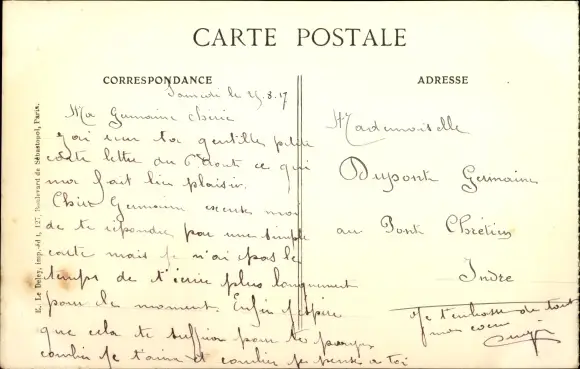 CARTE POSTALE
CORRESPONDANCE
ADRESSE
Samedi le 25.8.17
Ma Germaine cherie
J'ai reçu ta gentille petite
carte lettre du 6 Aout ce qui
ma fait bien plaisir.
Chère Germaine excuse moi
de te répondre par une simple
carte mais je n'ai pas le
temps de t'écrire plus longuement
pour le moment. Enfin j'espère
que cela te suffira pour te prouver
combien je t'aime et combien je pense a toi
Je t'embrasse de tout
mon coeur
Mademoiselle
Dupont Germaine
au Pont Chrétien
Indre
E. Le Deley, imp.-éd., 127, Boulevard de Sébastopol, Paris.